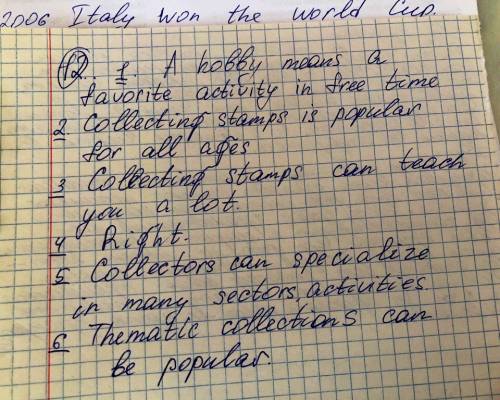 2006 Italy won the world Cup.
12.. 1. A hobby means a
favorite activity in free time
2 Collecting stamps is popular
for all ages
3 Collecting stamps can teach
you a lot.
4 Right.
5 Collectors can specialize
in many sectors, activities
6 Thematic collections can
be popular.